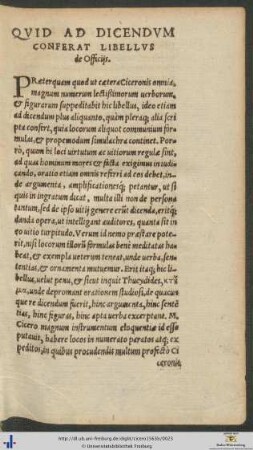 QVID AD DICENDVM
CONFERAT LIBELLVS
de Officijs.
PRæterquam quod ut cætera Ciceronis omnia,
magnum numerum lectissimorum uerborum,
& figurarum suppeditabit hic libellus, ideo etiam
ad dicendum plus aliquanto, quàm pleraq; alia scri
pta confert, quia locorum aliquot communium for-
mulas, & propemodum simulachra continet. Por-
rò, quum hi loci uirtutum ac uitiorum regulæ sint,
ad quas hominum mores & facta exigimus in iudi-
cando, oratio etiam omnis referri ad eos debet, in-
de argumenta, amplificationesq; petantur, ut si
quis in ingratum dicat, multa illi non de persona
tantum, sed de ipso uitij genere erūt dicenda, critiq;
danda opera, ut intelligant auditores, quanta sit in
eo uitio turpitudo. Verum id nemo præstare pote-
rit, nisi locorum illorū formulas bene meditatas ha-
beat, & exempla ueterum teneat, unde uerba, sen-
tentias, & ornamenta mutuemur. Erit itaq; hic li-
bellus, uelut penu, & sicut inquit Thucydides, κτῆ
μα, unde depromant orationem studiosi, de quacun
que re dicendum fuerit, hinc argumenta, hinc sentē
tias, hinc figuras, hinc apta uerba excerptur. M.
Cicero magnum instrumentum eloquentiæ id esse
putauit, habere locos in numerato paratos atq; ex
peditos, in quibus procudendis multum profectò Ci
ceronis
http://dl.ub.uni-freiburg.de/diglit/cicero1563b/0025
Universitätsbibliothek Freiburg